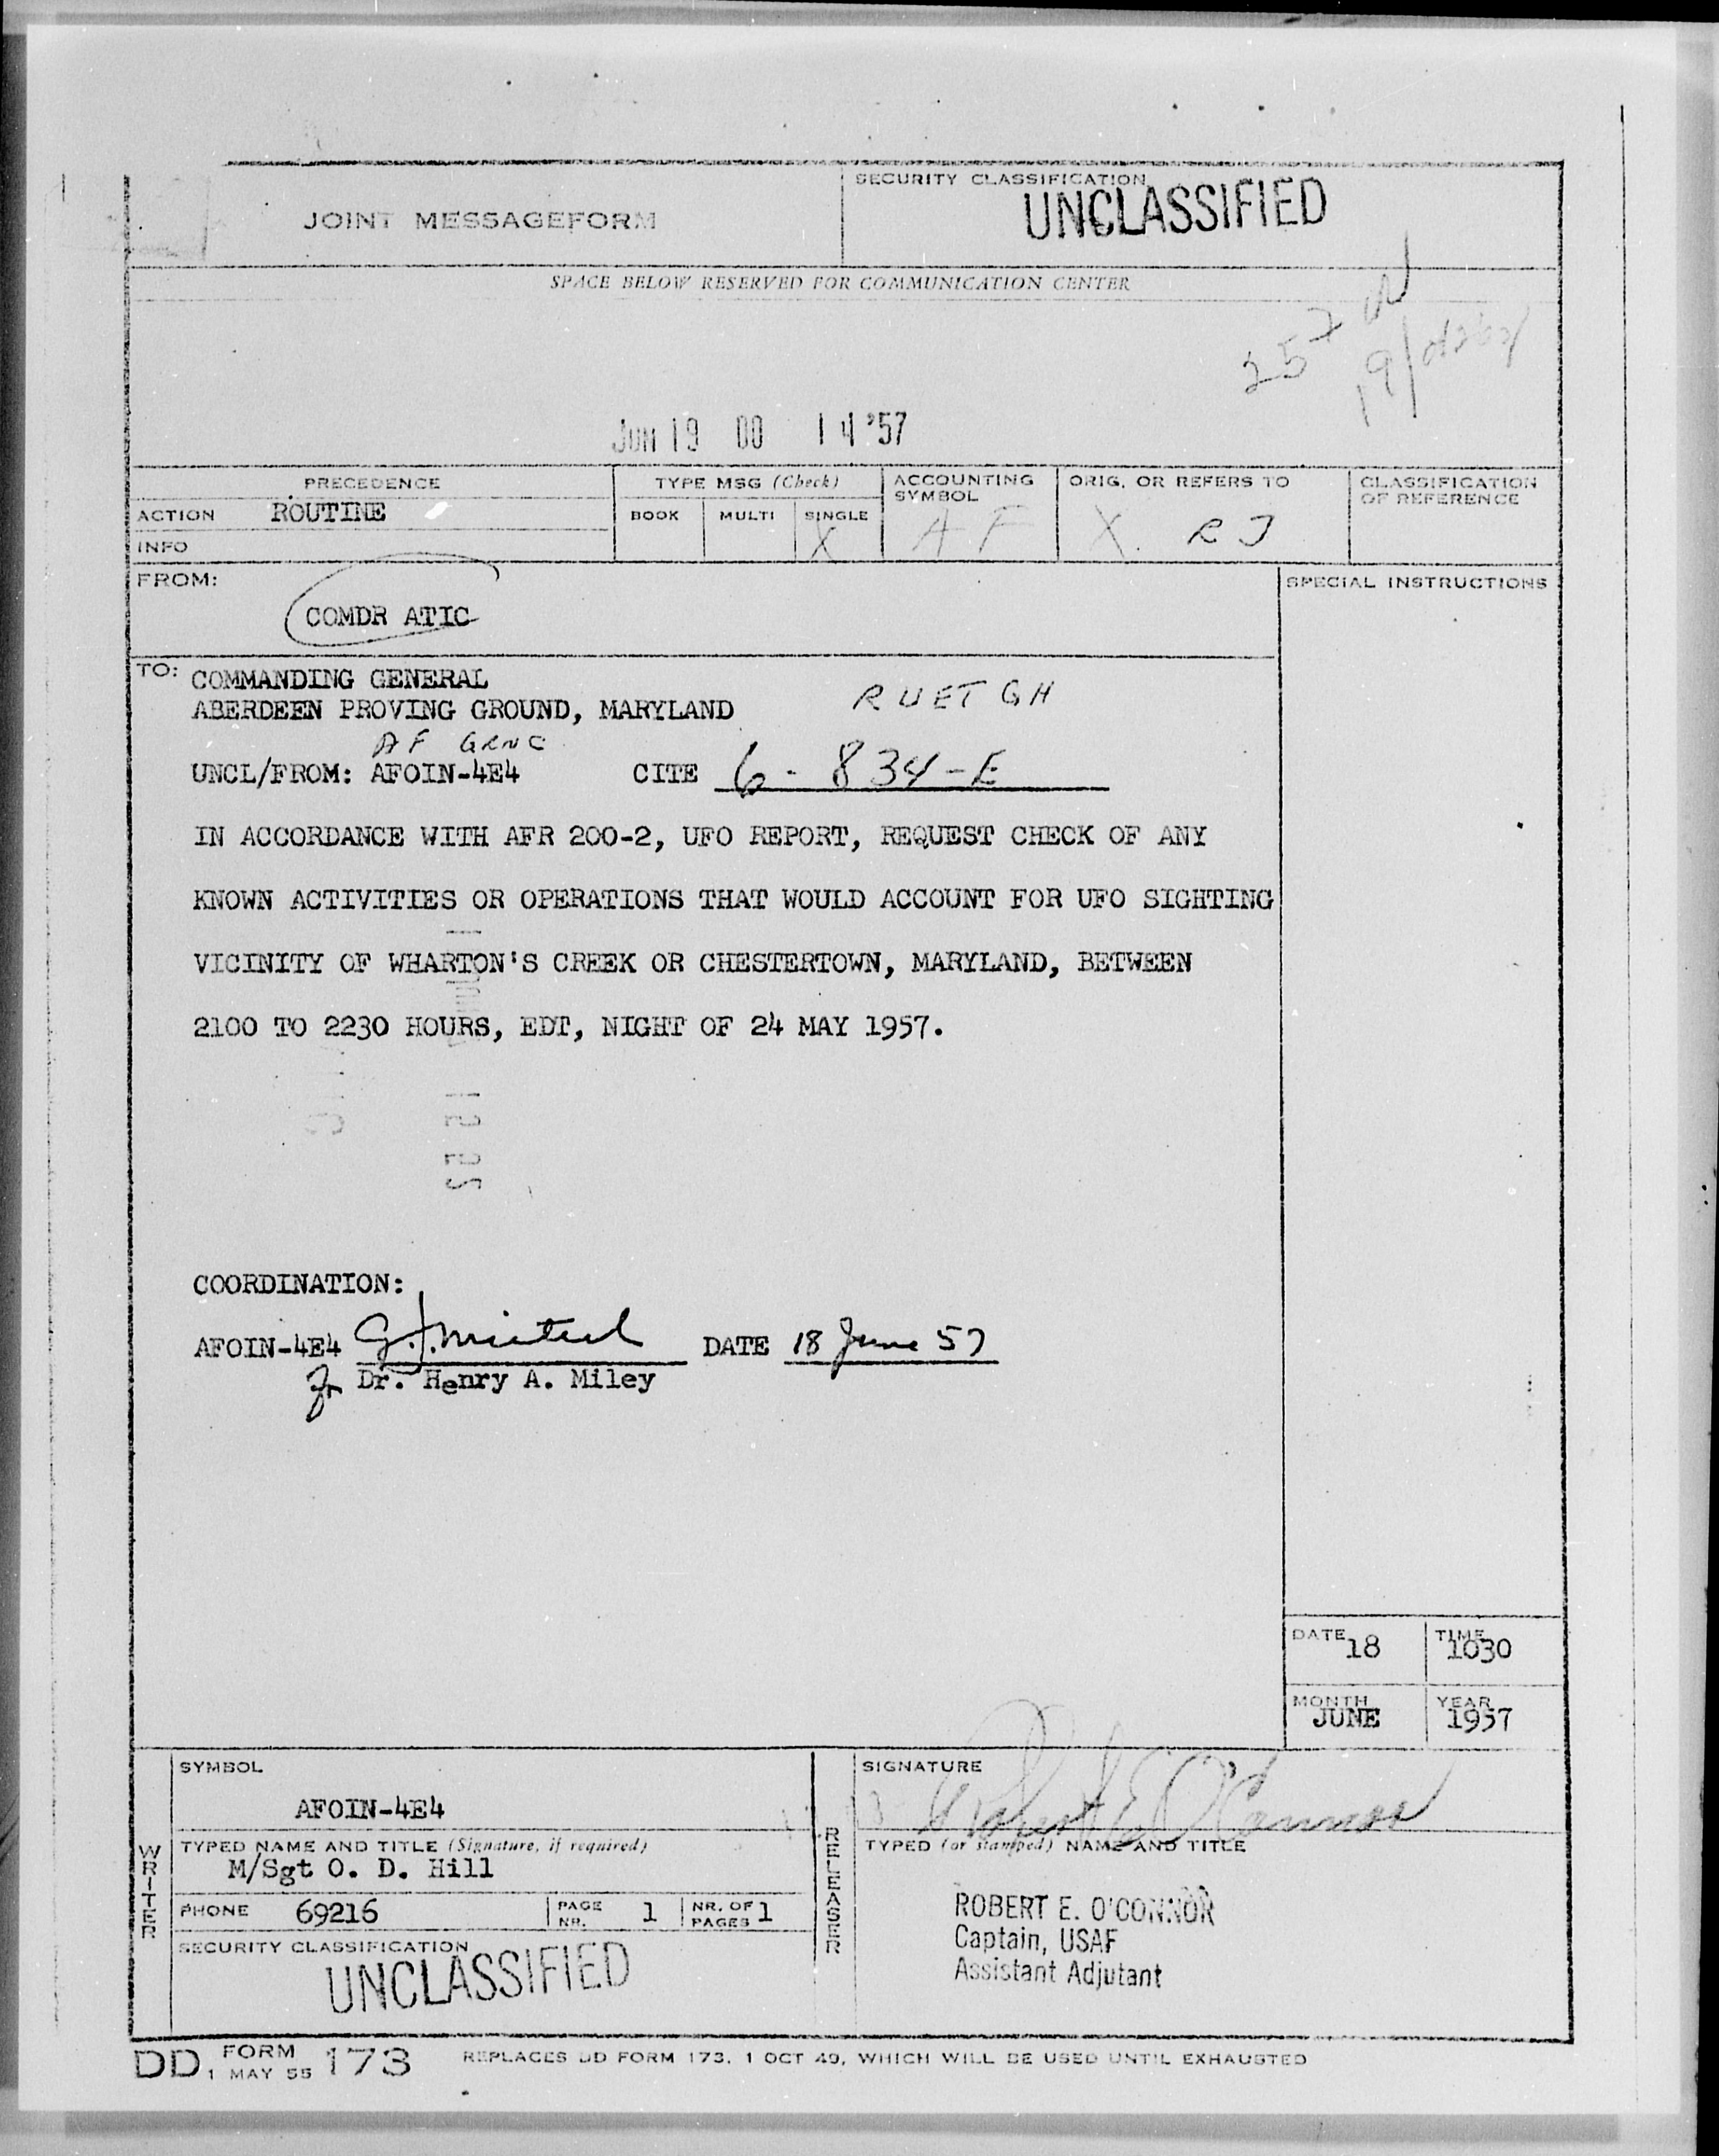 JOINT MESSAGEFORM
SECURITY CLASSIFICATION
UNCLASSIFIED
SPACE BELOW RESERVED FOR COMMUNICATION CENTER
257
19/
JUN 19 00 14 '57
PRECEDENCE
ACTION ROUTINE
INFO
TYPE MSG (Check)
BOOK MULTI SINGLE
X
ACCOUNTING
SYMBOL
AF
ORIG. OR REFERS TO
X RJ
CLASSIFICATION
OF REFERENCE
FROM:
COMDR ATIC
SPECIAL INSTRUCTIONS
TO: COMMANDING GENERAL
ABERDEEN PROVING GROUND, MARYLAND RUETGH
AF GRNC
UNCL/FROM: AFOIN-4E4 CITE 6-834-E
IN ACCORDANCE WITH AFR 200-2, UFO REPORT, REQUEST CHECK OF ANY
KNOWN ACTIVITIES OR OPERATIONS THAT WOULD ACCOUNT FOR UFO SIGHTING
VICINITY OF WHARTON'S CREEK OR CHESTERTOWN, MARYLAND, BETWEEN
2100 TO 2230 HOURS, EDT, NIGHT OF 24 MAY 1957.
COORDINATION:
AFOIN-4E4 DATE 18 June 57
for Dr. Henry A. Miley
DATE 18 TIME 1030
MONTH JUNE YEAR 1957
WRITER
SYMBOL
AFOIN-4E4
TYPED NAME AND TITLE (Signature, if required)
M/Sgt O. D. Hill
PHONE 69216 PAGE NR. 1 NR. OF PAGES 1
SECURITY CLASSIFICATION
UNCLASSIFIED
RELEASER
SIGNATURE
Robert E O'Connor
TYPED (or stamped) NAME AND TITLE
ROBERT E. O'CONNOR
Captain, USAF
Assistant Adjutant
DD FORM 173
1 MAY 55
REPLACES DD FORM 173, 1 OCT 49, WHICH WILL BE USED UNTIL EXHAUSTED